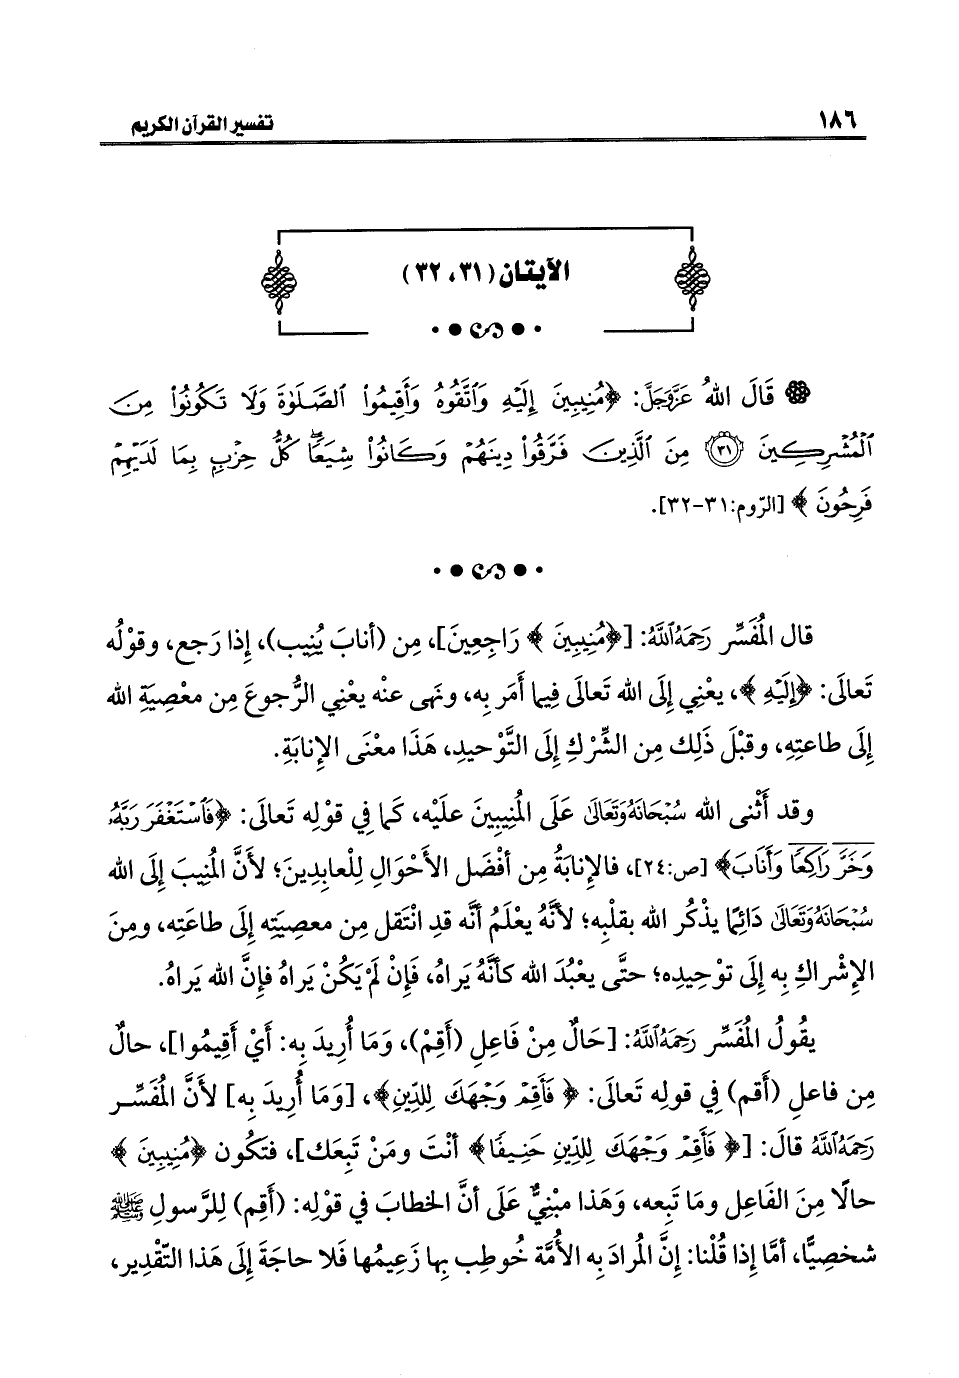 ١٨٦
تفسير القرآن الكريم
الآيتان (٣١، ٣٢)
قَالَ اللهُ عَزَّوَجَلَّ: ﴿مُنِيبِينَ إِلَيْهِ وَٱتَّقُوهُ وَأَقِيمُوا۟ ٱلصَّلَوٰةَ وَلَا تَكُونُوا۟ مِنَ
ٱلْمُشْرِكِينَ ﴿٣١﴾ مِنَ ٱلَّذِينَ فَرَّقُوا۟ دِينَهُمْ وَكَانُوا۟ شِيَعًا ۖ كُلُّ حِزْبٍۭ بِمَا لَدَيْهِمْ
فَرِحُونَ﴾ [الرّوم:٣١-٣٢].
قال المُفَسِّر رَحِمَهُ ٱللَّهُ: [﴿مُنِيبِينَ﴾ رَاجِعِينَ]، مِن (أنابَ يُنِيب)، إذا رَجع، وقوْلُه
تَعالَى: ﴿إِلَيْهِ﴾، يعْنِي إِلَى الله تَعالَى فِيما أمَر بِه، ونهَى عنْه يعْنِي الرُّجوعَ مِن معْصِيَةِ الله
إِلَى طاعتِهِ، وقبْلَ ذَلِك مِن الشِّرْكِ إِلَى التَّوْحيدِ، هَذَا معْنَى الإنابَةِ.
وقد أثْنى الله سُبْحَانَهُ وَتَعَالَى عَلَى المُنِيبينَ علَيْه، كَما فِي قوْلِه تَعالَى: ﴿فَٱسْتَغْفَرَ رَبَّهُۥ
وَخَرَّ رَاكِعًا وَأَنَابَ﴾ [ص:٢٤]، فالإنابَةُ مِن أفْضَل الأحْوَالِ لِلْعابِدِينَ؛ لأنَّ المُنِيبَ إِلَى الله
سُبْحَانَهُ وَتَعَالَى دَائِمًا يذْكُر الله بقلْبِه؛ لأنَّهُ يعْلَمُ أنَّه قدِ انْتَقل مِن معصِيَتِه إِلَى طاعَتِه، ومِنَ
الإِشْراكِ بِه إِلَى توْحِيدِه؛ حتَّى يعْبُدَ الله كأنَّهُ يَراهُ، فَإِنْ لَمْ يَكُنْ يَراهُ فإنَّ الله يَراهُ.
يقُولُ المُفَسِّر رَحِمَهُ ٱللَّهُ: [حَالٌ مِنْ فَاعِلِ (أَقِمْ)، وَمَا أُرِيدَ بِه: أَيْ أَقِيمُوا]، حالٌ
مِن فاعلِ (أَقم) فِي قولِه تَعالَى: ﴿فَأَقِمْ وَجْهَكَ لِلدِّينِ﴾، [وَمَا أُرِيدَ بِه] لأنَّ المُفَسِّر
رَحِمَهُ ٱللَّهُ قالَ: [﴿فَأَقِمْ وَجْهَكَ لِلدِّينِ حَنِيفًا﴾ أنْتَ ومَنْ تَبِعَك]، فتَكُون ﴿مُنِيبِينَ﴾
حالًا مِنَ الفَاعِل ومَا تَبِعه، وَهَذا مبْنِيٌّ عَلَى أنَّ الخطابَ فِي قوْلِه: (أَقِم) لِلرَّسولِ ﷺ
شخصِيًّا، أمَّا إذا قُلْنا: إنَّ المُرادَ بِه الأُمَّة خُوطِب بِها زَعِيمُها فَلَا حاجَةَ إِلَى هَذا التَّقْدِير،